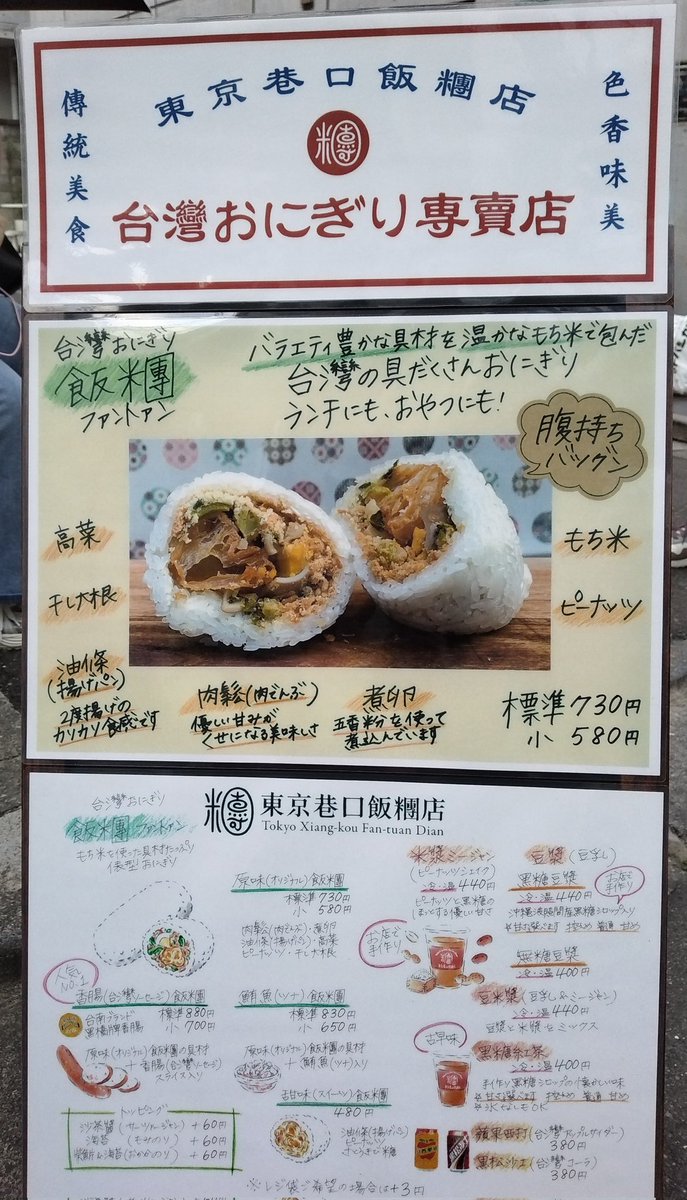 東京巷口飯糰店
傳統美食
色香味美
糰
台灣おにぎり専賣店
台灣おにぎり
飯糰
ファントァン
バラエティ豊かな具材を温かなもち米で包んだ
台灣の具だくさんおにぎり
ランチにも、おやつにも!
腹持ち
バツグン
高菜
干し大根
油條
(揚げパン)
2度揚げの
カリカリ食感です
肉鬆(肉でんぶ)
優しい甘みが
くせになる美味しさ
煮卵
五香粉を使って
煮込んでいます
もち米
ピーナッツ
標準730円
小 580円
糰
東京巷口飯糰店
Tokyo Xiang-kou Fan-tuan Dian
台灣おにぎり
飯糰 ファントァン
もち米を使った具材たっぷり
俵型おにぎり
原味(オリジナル)飯糰
標準730円
小 580円
肉鬆(肉でんぶ)・煮卵
油條(揚げパン)・高菜
ピーナッツ・干し大根
人気
NO.1
香腸(台灣ソーセージ)飯糰
台南ブランド
黒橋牌香腸
標準880円
小 700円
原味(オリジナル)飯糰の具材
+香腸(台灣ソーセージ)
スライス入り
鮪魚(ツナ)飯糰
標準830円
小 650円
原味(オリジナル)飯糰の具材
+鮪魚(ツナ)入り
甜味(スイーツ)飯糰
480円
油條(揚げパン)
ピーナッツ
さとうきび糖
トッピング
沙茶醬(サーツァージャン)+60円
海苔(もみのり)+60円
柴魚&海苔(おかかのり)+60円
※レジ袋ご希望の場合は+3円
米漿ミージャン
(ピーナッツシェイク)
冷・温440円
ピーナッツと黒糖の
まったりする優しい甘さ
お店で
手作り
豆漿(豆乳)
黒糖豆漿
冷・温440円
お店で
手作り
沖縄波照間産黒糖シロップ入り
※甘さ選べます 控えめ 普通 甘め
無糖豆漿
冷・温400円
豆米漿(豆乳&ミージャン)
冷・温400円
豆漿と米漿をミックス
古早味
黒糖紅茶
冷・温400円
手作り黒糖シロップの懐かしい味
※甘さ選べます 控えめ 普通 甘め
※氷なしもOK
蘋果西打(台灣アップルサイダー)
380円
黒松沙士(台灣コーラ)
380円